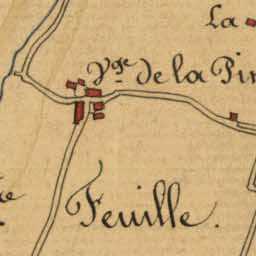 La
Vge de la Pin
Feuille.